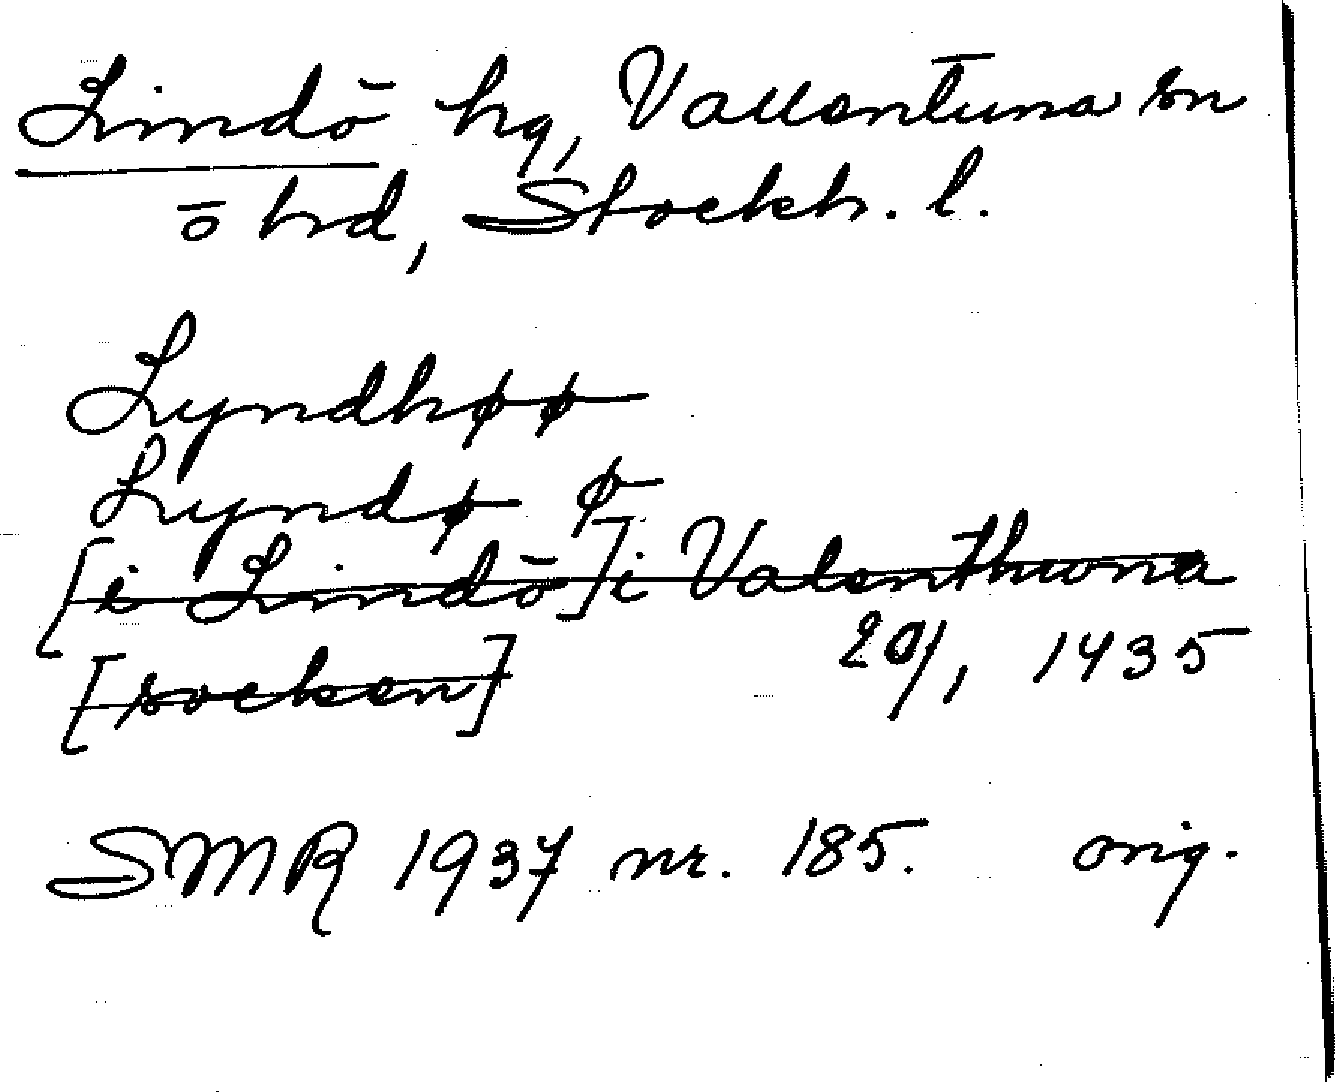 Lindö hg, Vallentuna sn
o hd, Stockh. l.
Lyndhøø
Lyndø ø
[i Lindö] i Valenthwna
[socken] 20/1 1435
SMR 1937 nr. 185. orig.